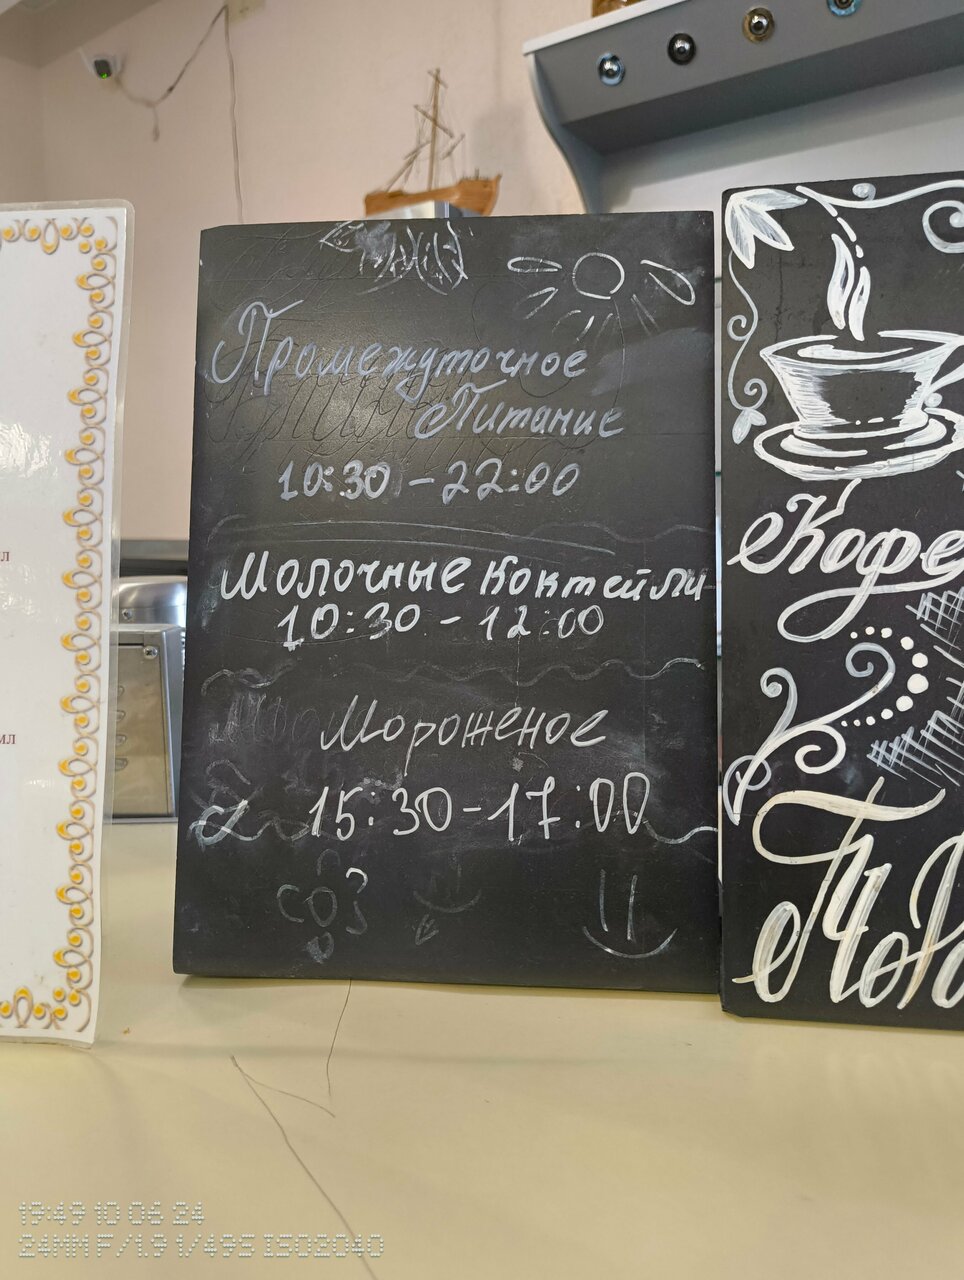 Промежуточное
Питание
10:30 - 22:00
Молочные коктейли
10:30 - 12:00
Мороженое
15:30 - 17:00
Кофе
л
мл
19:49 10 06 24
24MM F/1.9 1/49S ISO2040